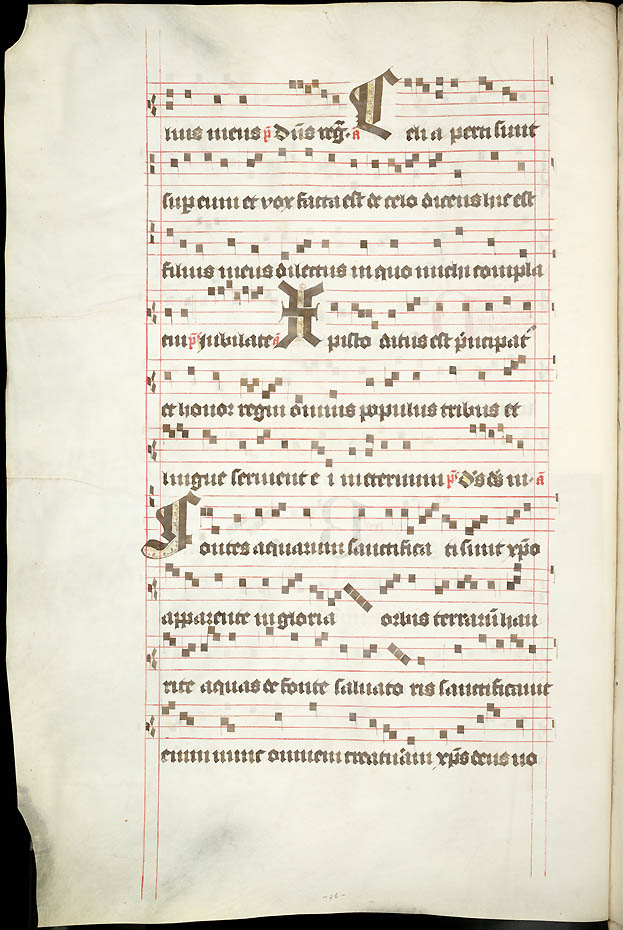 lius meus p̄ Dn̄s reg̃. a Celi a perti sunt
super eum et vox facta est de celo dicens hic est
filius meus dilectus in quo michi compla
cui p̄ Jubilate a Xpisto datus est p̄ncipat᷒
et honor regni omnis populus tribus et
lingue servient e i ineternum p̄ D's d's m. a
Fontes aquarum sanctifica ti sunt xp̄o
apparente in gloria orbis terrarū hau
rite aquas de fonte salvato ris sanctificavit
enim nunc omnem creaturam xp̄s deus no
-76-